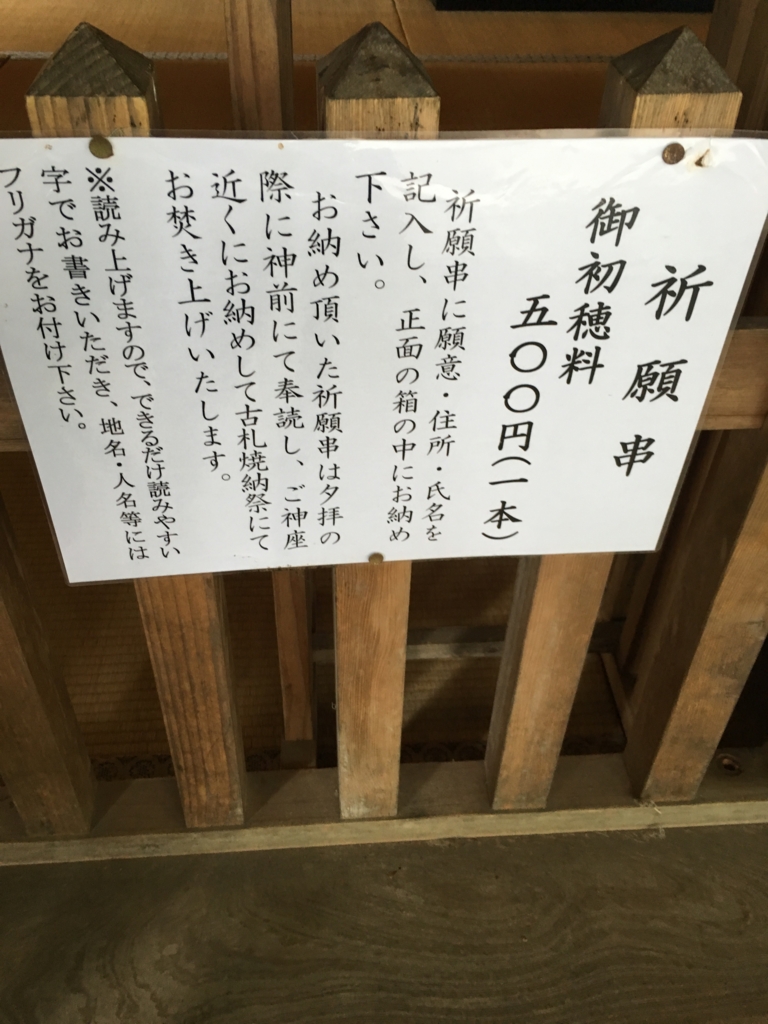 祈願串
御初穂料
五〇〇円(一本)
祈願串に願意・住所・氏名を
記入し、正面の箱の中にお納め
下さい。
お納め頂いた祈願串は夕拝の
際に神前にて奉読し、ご神座
近くにお納めして古札焼納祭にて
お焚き上げいたします。
※読み上げますので、できるだけ読みやすい
字でお書きいただき、地名・人名等には
フリガナをお付け下さい。